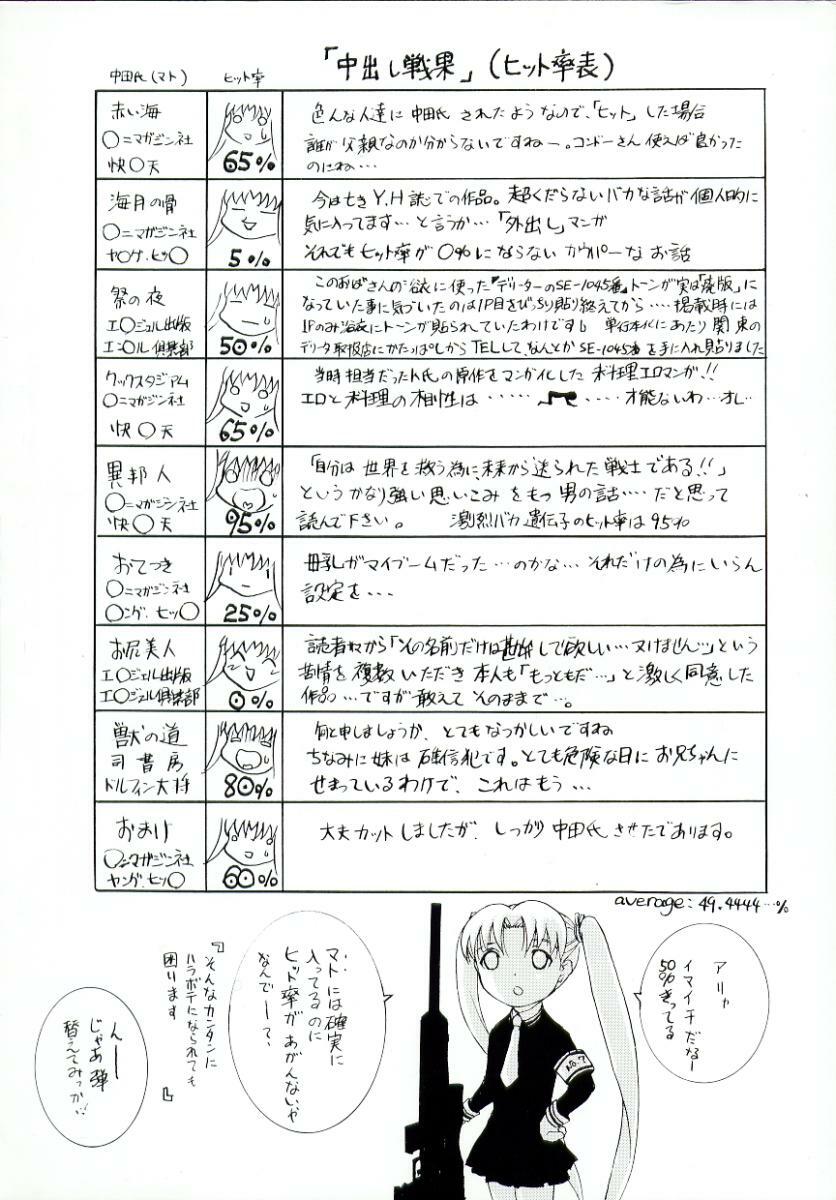 「中出し戦果」(ヒット率表)
中田氏(マト)
ヒット率
赤い海
〇ニマガジン社
快〇天
65%
色んな人達に中田氏されたようなので、「ヒット」した場合
誰が父親なのか分からないですねー。コンドーさん使えば良かった
のにね…
海月の骨
〇ニマガジン社
ヤ〇グ.ヒッ〇
5%
今は亡きY.H誌での作品。超くだらないバカな話が個人的に
気に入ってます…と言うか…「外出し」マンガ
それでもヒット率が0%にならないカウパーなお話
祭の夜
エ〇ジェル出版
エン〇ル倶楽部
50%
このおばさんの浴衣に使った『デリーターのSE-1045番』トーンが実は「廃版」に
なっていた事に気づいたのは1P目をびっちり貼り終えてから….掲載時には
1Pのみ浴衣にトーンが貼られていたわけです。単行本化にあたり関東の
デリータ取扱店にかたっぱしからTELして、なんとかSE-1045番を手に入れ貼りました
クックスタジアム
〇ニマガジン社
快〇天
65%
当時担当だったト氏の原作をマンガ化した料理エロマンガ!!
エロと料理の相性は・・・・・ ・・・・才能ないわ…オレ…
異邦人
〇ニマガジン社
快〇天
95%
「自分は世界を救う為に、未来から送られた戦士である!!」
というかなり強い思いこみをもつ男の話….だと思って
読んで下さい。 激烈バカ遺伝子のヒット率は95%
おてつき
〇ニマガジン社
〇ング.ヒッ〇
25%
母乳がマイブームだった…のかな…それだけの為にいらん
設定を・・・
お尻美人
エ〇ジェル出版
エ〇ジェル倶楽部
0%
読者から「その名前だけは勘弁して欲しい…ヌけません…」という
苦情を複数いただき本人も「もっともだ…」と激しく同意した
作品…ですが敢えてそのままで…。
獣の道
司書房
ドルフィン大将
80%
何と申しましょうか、とてもなつかしいですね
ちなみに妹は確信犯です。とても危険な日にお兄ちゃんに
せまっているわけで、これはもう…
おまけ
〇ニマガジン社
ヤング.ヒッ〇
60%
大丈カットしましたが、しっかり中田氏させたであります。
average:49.4444…%
アリャ
イマイチだなー
50%きってる
マトには確実に
入ってるのに
ヒット率が
あがんないや
なんでーて、
『そんなカンタンに
ハラボテになられても
困ります』
んーー
じゃあ弾
替えてみっか…